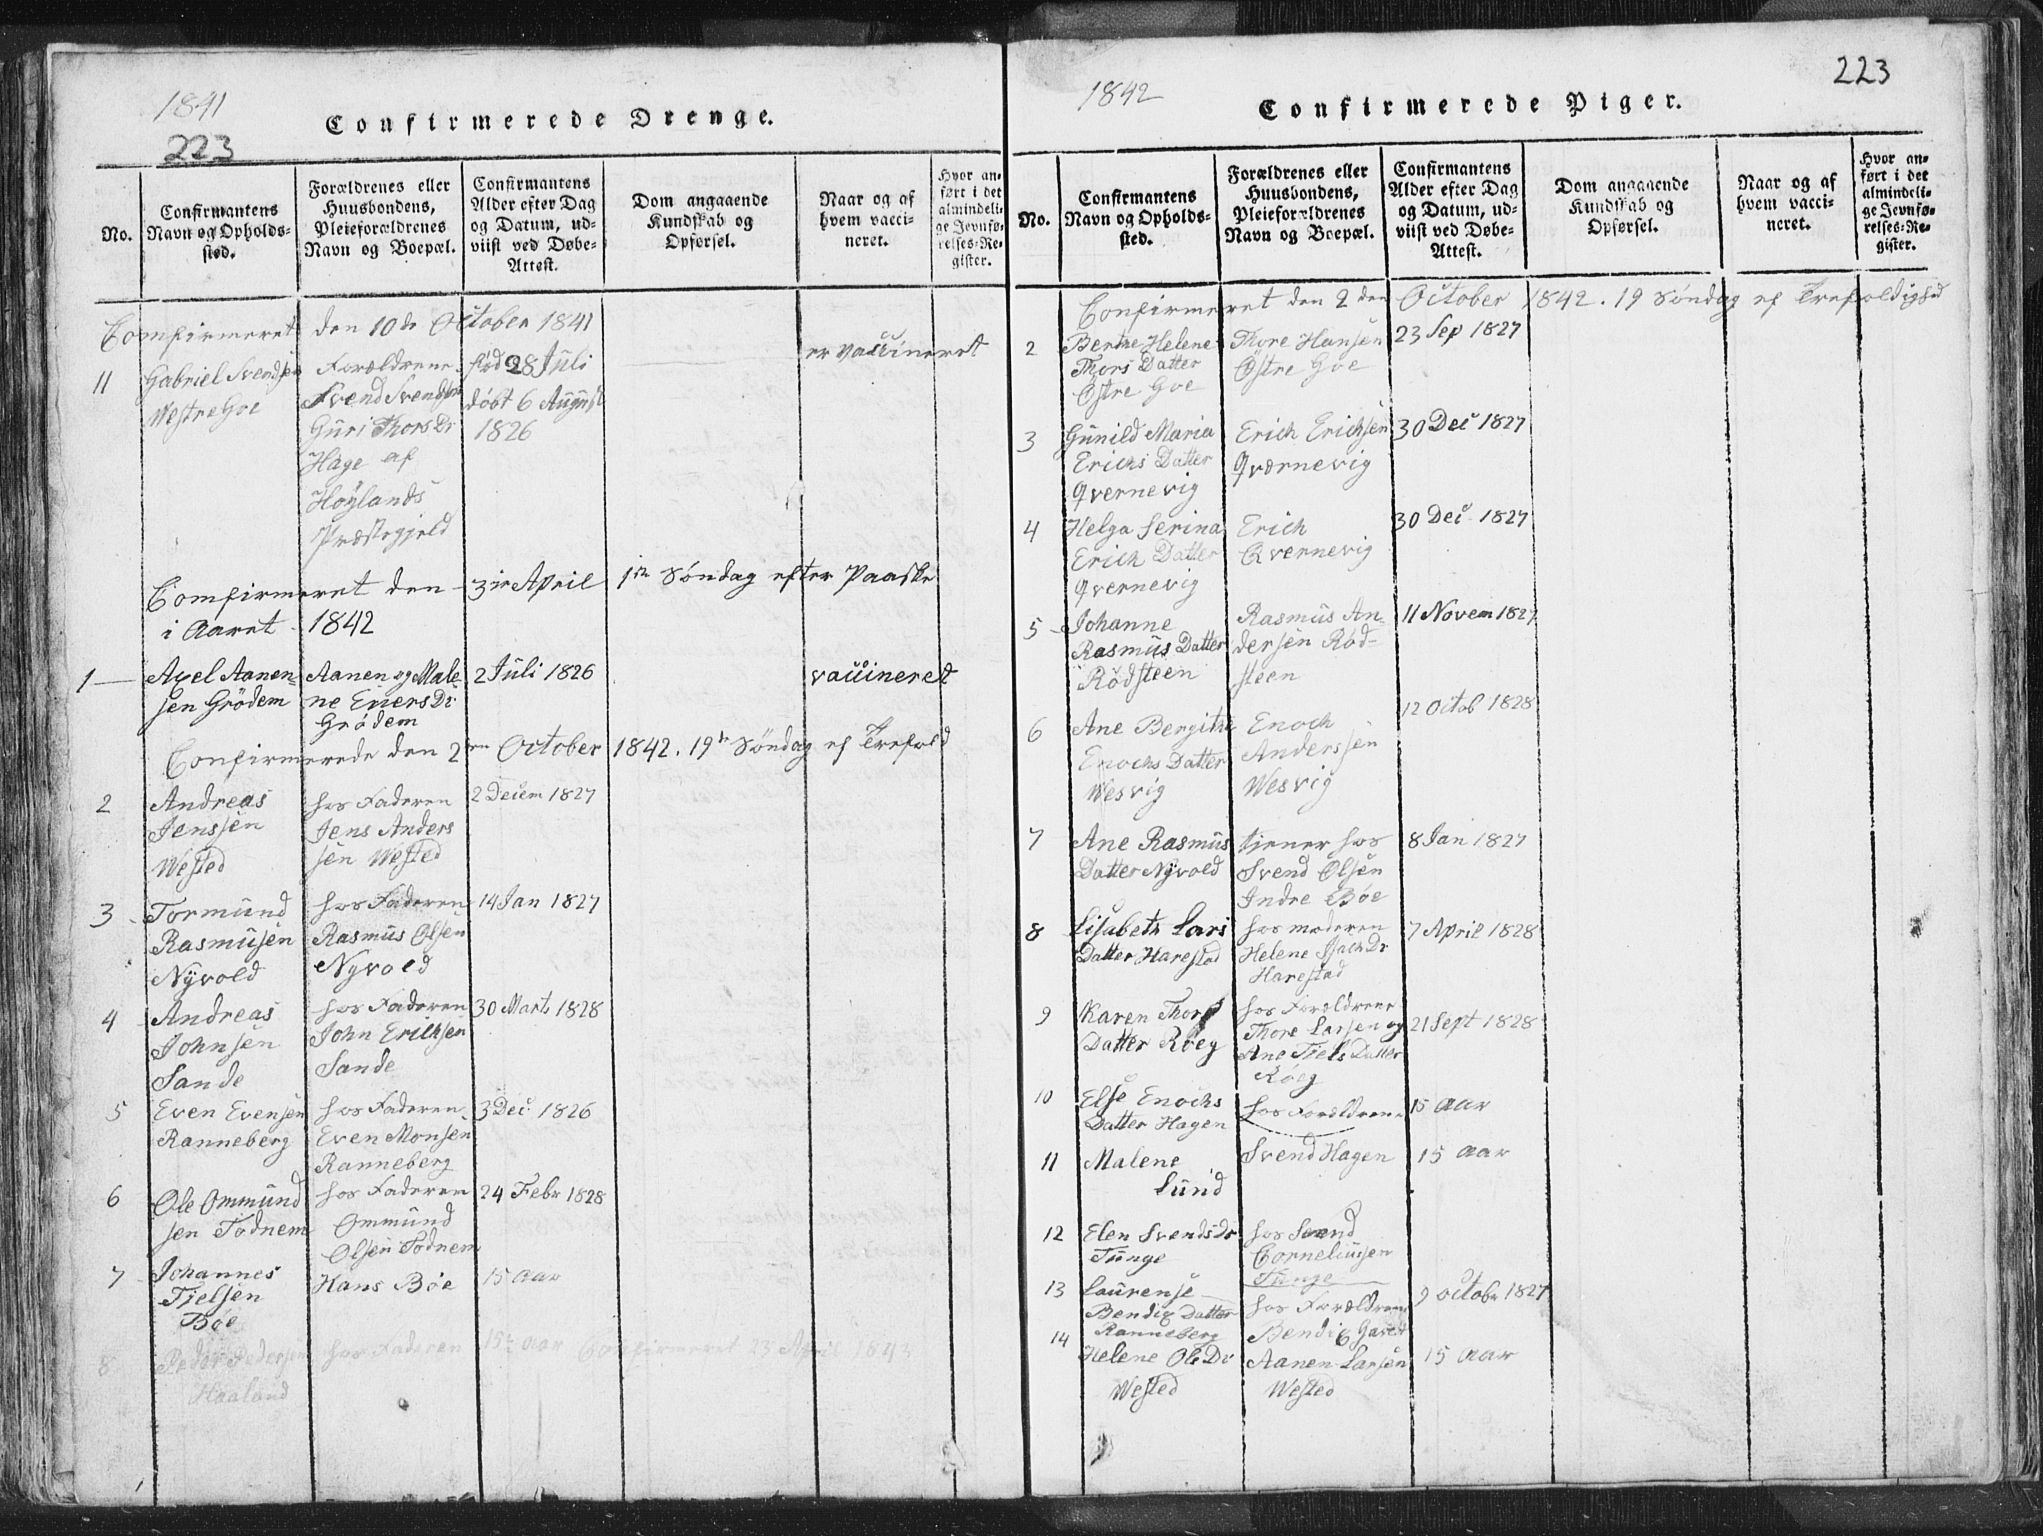 1841
223
Confirmerede Drenge.
No.
Confirmantens
Navn og Opholds-
sted.
Forældrenes eller
Huusbondens,
Pleieforældrenes
Navn og Boepæl.
Confirmantens
Alder efter Dag
og Datum, ud-
viist ved Døbe-
Attest.
Dom angaaende
Kundskab og
Opførsel.
Naar og af
hvem vacci-
neret.
Hvor an-
ført i det
almindeli-
ge Jevnfø-
relses-Re-
gister.
Confirmeret den 10de October 1841
11 Gabriel Svendsen
Westre Goe
Forældrene
Svend Svendsen
Guri Thors Dr
Hage af
Høylands
Præstegjeld
fød 28 Juli
døbt 6 August
1826
er vaccineret
Confirmeret den 3die April 1ste Søndag efter Paaske
i Aaret 1842
1 Axel Aanen-
sen Grödem
Aanen og Male-
ne Einers Dr
Grödem
2 Juli 1826
vaccineret
Confirmerede den 2den October 1842. 19de Søndag ef Trefold
2 Andreas
Jenssen
Wested
hos Faderen
Jens Anders
sen Wested
2 Decem 1827
3 Tormund
Rasmusen
Nyvold
hos Faderen
Rasmus Olsen
Nyvold
14 Jan 1827
4 Andreas
Johnsen
Sande
hos Faderen
John Erichsen
Sande
30 Marts 1828
5 Even Evensen
Ranneberg
hos Faderen
Even Monsen
Ranneberg
3 Dec 1826
6 Ole Ommund
sen Todnem
hos Faderen
Ommund
Olsen Todnem
24 Febr 1828
7 Johannes
Tielsen
Bøe
Hans Bøe
15 Aar
8 Peder Pedersen
Haaland
hos Faderen
15 Aar Confirmeret 23 April 1843
1842
223
Confirmerede Piger.
No.
Confirmantens
Navn og Opholds-
sted.
Forældrenes eller
Huusbondens,
Pleieforældrenes
Navn og Boepæl.
Confirmantens
Alder efter Dag
og Datum, ud-
viist ved Døbe-
Attest.
Dom angaaende
Kundskab og
Opførsel.
Naar og af
hvem vacci-
neret.
Hvor an-
ført i det
almindeli-
ge Jevnfø-
relses-Re-
gister.
Confirmeret den 2den October 1842. 19 Søndag ef Trefoldighed
2 Berthe Helene
Thors Datter
Østre Goe
Thore Hansen
Østre Goe
23 Sep 1827
3 Gunild Maria
Erichs Datter
Qvernevig
Erich Erichsen
Qværnevig
30 Dec 1827
4 Helga Serina
Erich Datter
Qvernevig
Erich
Qvernevig
30 Dec 1827
5 Johanne
Rasmus Datter
Rödsteen
Rasmus An-
dersen Röd-
steen
11 Novem 1827
6 Ane Bergithe
Enochs Datter
Wesvig
Enoch
Anderssen
Wesvig
12 Octob 1828
7 Ane Rasmus
Datter Nyvold
tjener hos
Svend Olsen
Indre Bøe
8 Jan 1827
8 Lisabeth Lars
Datter Harestad
hos moderen
Helene Isach Dr
Harestad
7 April 1828
9 Karen Thors
Datter Röeg
hos Forældrene
Thore Larsen og
Ane Tiels Datter
Röeg
21 Sept 1828
10 Else Enochs
Datter Hagen
hos Forældrene
15 Aar
11 Malene
Lund
Svend Hagen
15 Aar
12 Elen Svends Dr
Tunge
hos Svend
Corneliussen
Tunge
13 Laurense
Bendix Datter
Ranneberg
hos Forældrene
Bendix
9 Octobr 1827
14 Helene Ols Dr
Wested
Aanen Larsen
Wested
15 Aar